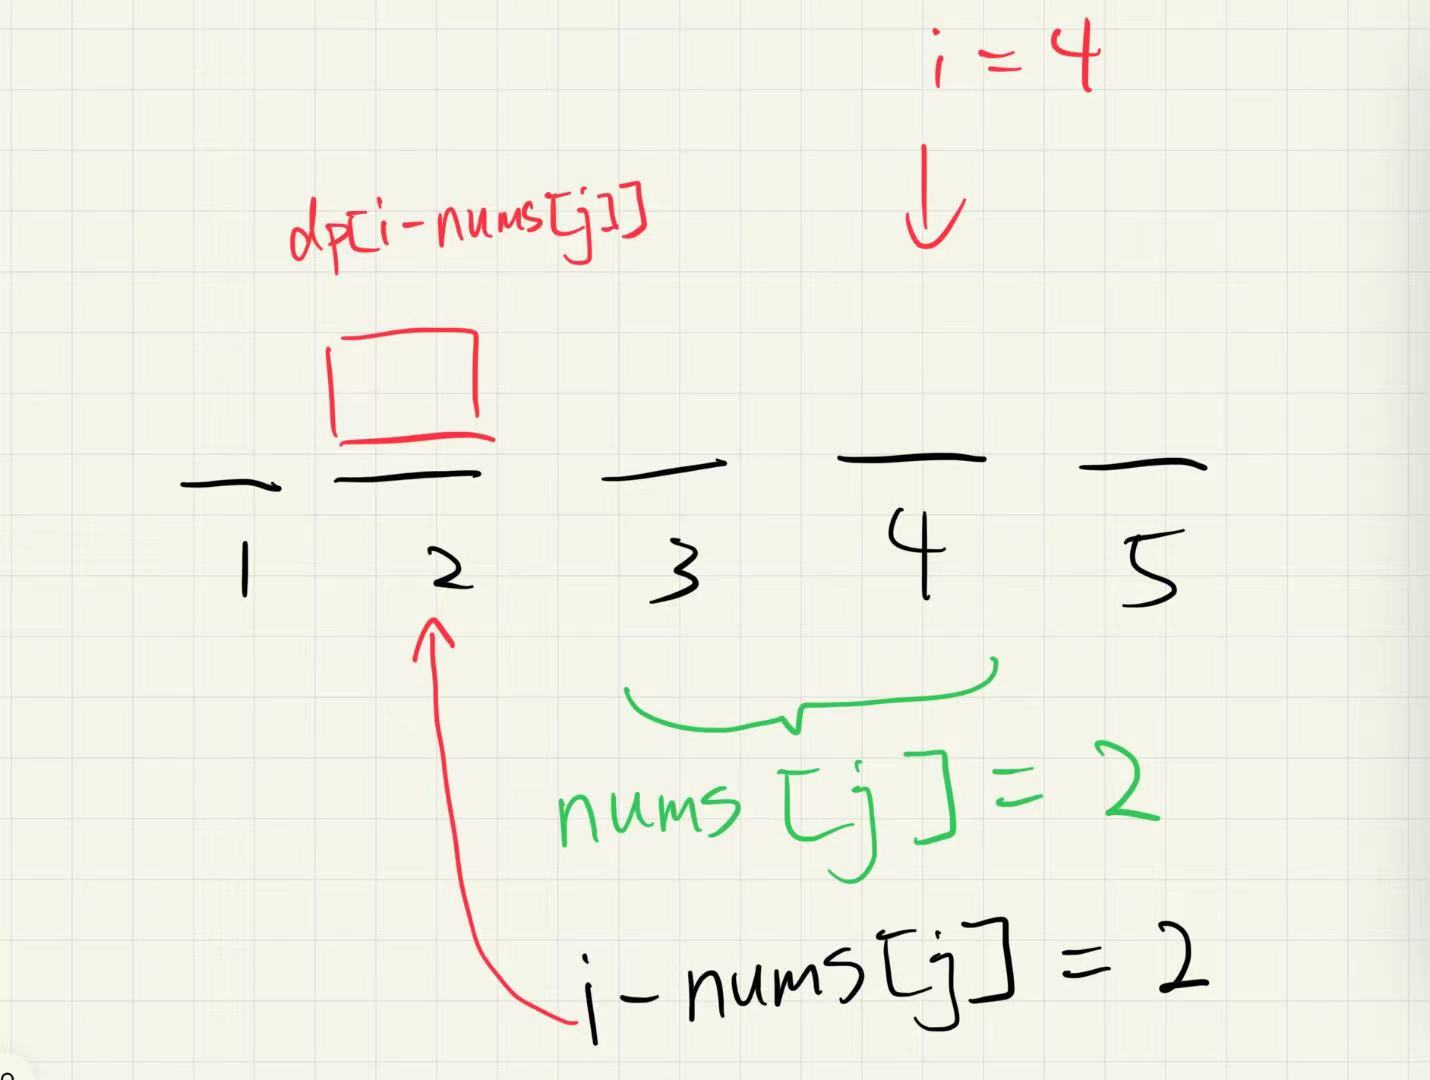 i = 4
dp[i-nums[j]]
1 2 3 4 5
nums [j] = 2
i-nums[j] = 2